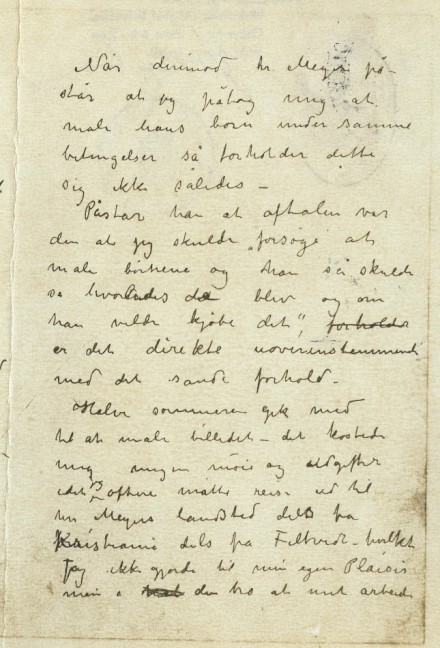 Når derimod hr. Meyer på-
står at jeg påtog mig at
male hans børn under samme
betingelser så forholder dette
sig ikke således –
Påstår han at aftalen var
den at jeg skulde „forsøge at
male børnene og han så skulde
se hvorledes de blev og om
han vilde kjøbe det", forholder
er det direkte uoverenstemmende
med det sande forhold –
Halve sommeren gik med
til at male billedet – det kostede
mig megen møie og udgifter
idet jeg oftere måtte reise ud til
hr Meyers landsted dels fra
Kristiania dels fra Filtvedt – hvilket
jeg ikke gjorde til min egen Plaisir
men i den tro at mit arbeide